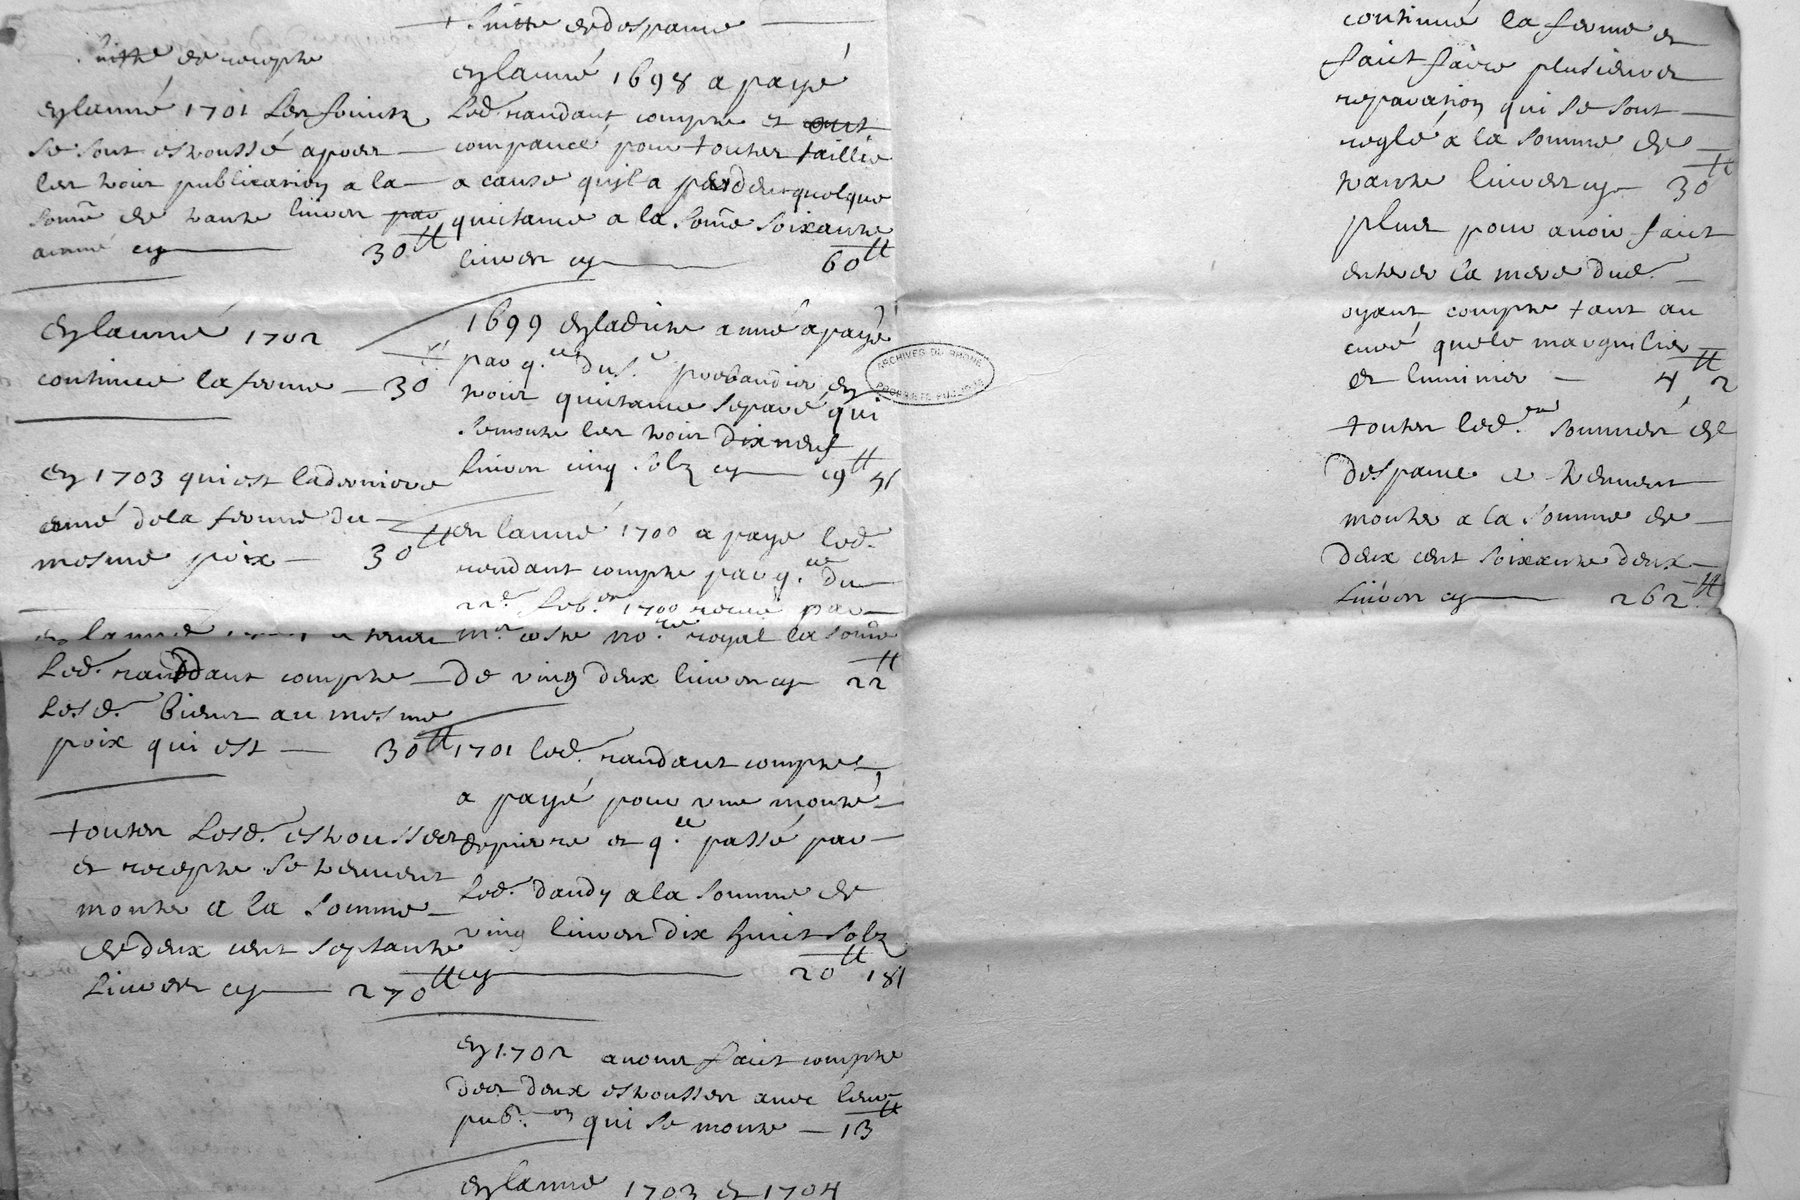 Suitte de recepte
En lanné 1701 les fruictz
se sont eshoussé apres
les trois publication a la
som̃e de trante livres par
anné cy 30ᵗᵗ
En lanné 1702
continue la ferme 30ᵗᵗ
En 1703 qui est la derniere
anné de la ferme du
mesme prix 30ᵗᵗ
en lanné a tenu
Led. randant compte
Lesd. biens au mesme
prix qui est 30ᵗᵗ
toutes Lesd. eshousses
et recepte se treuvent
monter a la somme
de deux cent septante
Livres cy 270ᵗᵗ
+ Suitte de despance
En lanné 1698 a payé
Led. randant compte et
compancé pour toutes taillie
a cause quil a perdeu quelque
quitance a la som̃e soixante
livres cy 60ᵗᵗ
1699 En ladicte anné a payé
par q.ce du S.r en
trois quitance separé qui
se monte les trois dix neuf
livres cinq solz cy 19ᵗᵗ 5ſ
en lanné 1700 a paye led.
rendant compte par q.ce du
22e. feb.er 1700 receue par
m.re coste no.re royal la som̃e
de ving deux livres cy 22ᵗᵗ
1701 led. randant compte
a payé pour une monté
de pierre et q.ce passé par
led. dandy a la somme de
ving livres dix huict solz
cy 20ᵗᵗ 18ſ
En 1702 avons faict compte
des deux eshousses avec leur
pub.on qui se monte 13ᵗᵗ
En lanné 1703 et 1704
ARCHIVES DU RHONE
PROPRIETE PUBLIQUE
continué la ferme et
faict faire plusieurs
reparation qui se sont
reglé a la somme de
trante livres cy 30ᵗᵗ
plus pour avoir faict
enterer la mere dud.
oyant compte tant au
curé que le marguilier
et luminier 4ᵗᵗ 2
toutes led.es sommes de
despance se treuvent
monter a la somme de
deux cent soixante deux
Livres cy 262ᵗᵗ